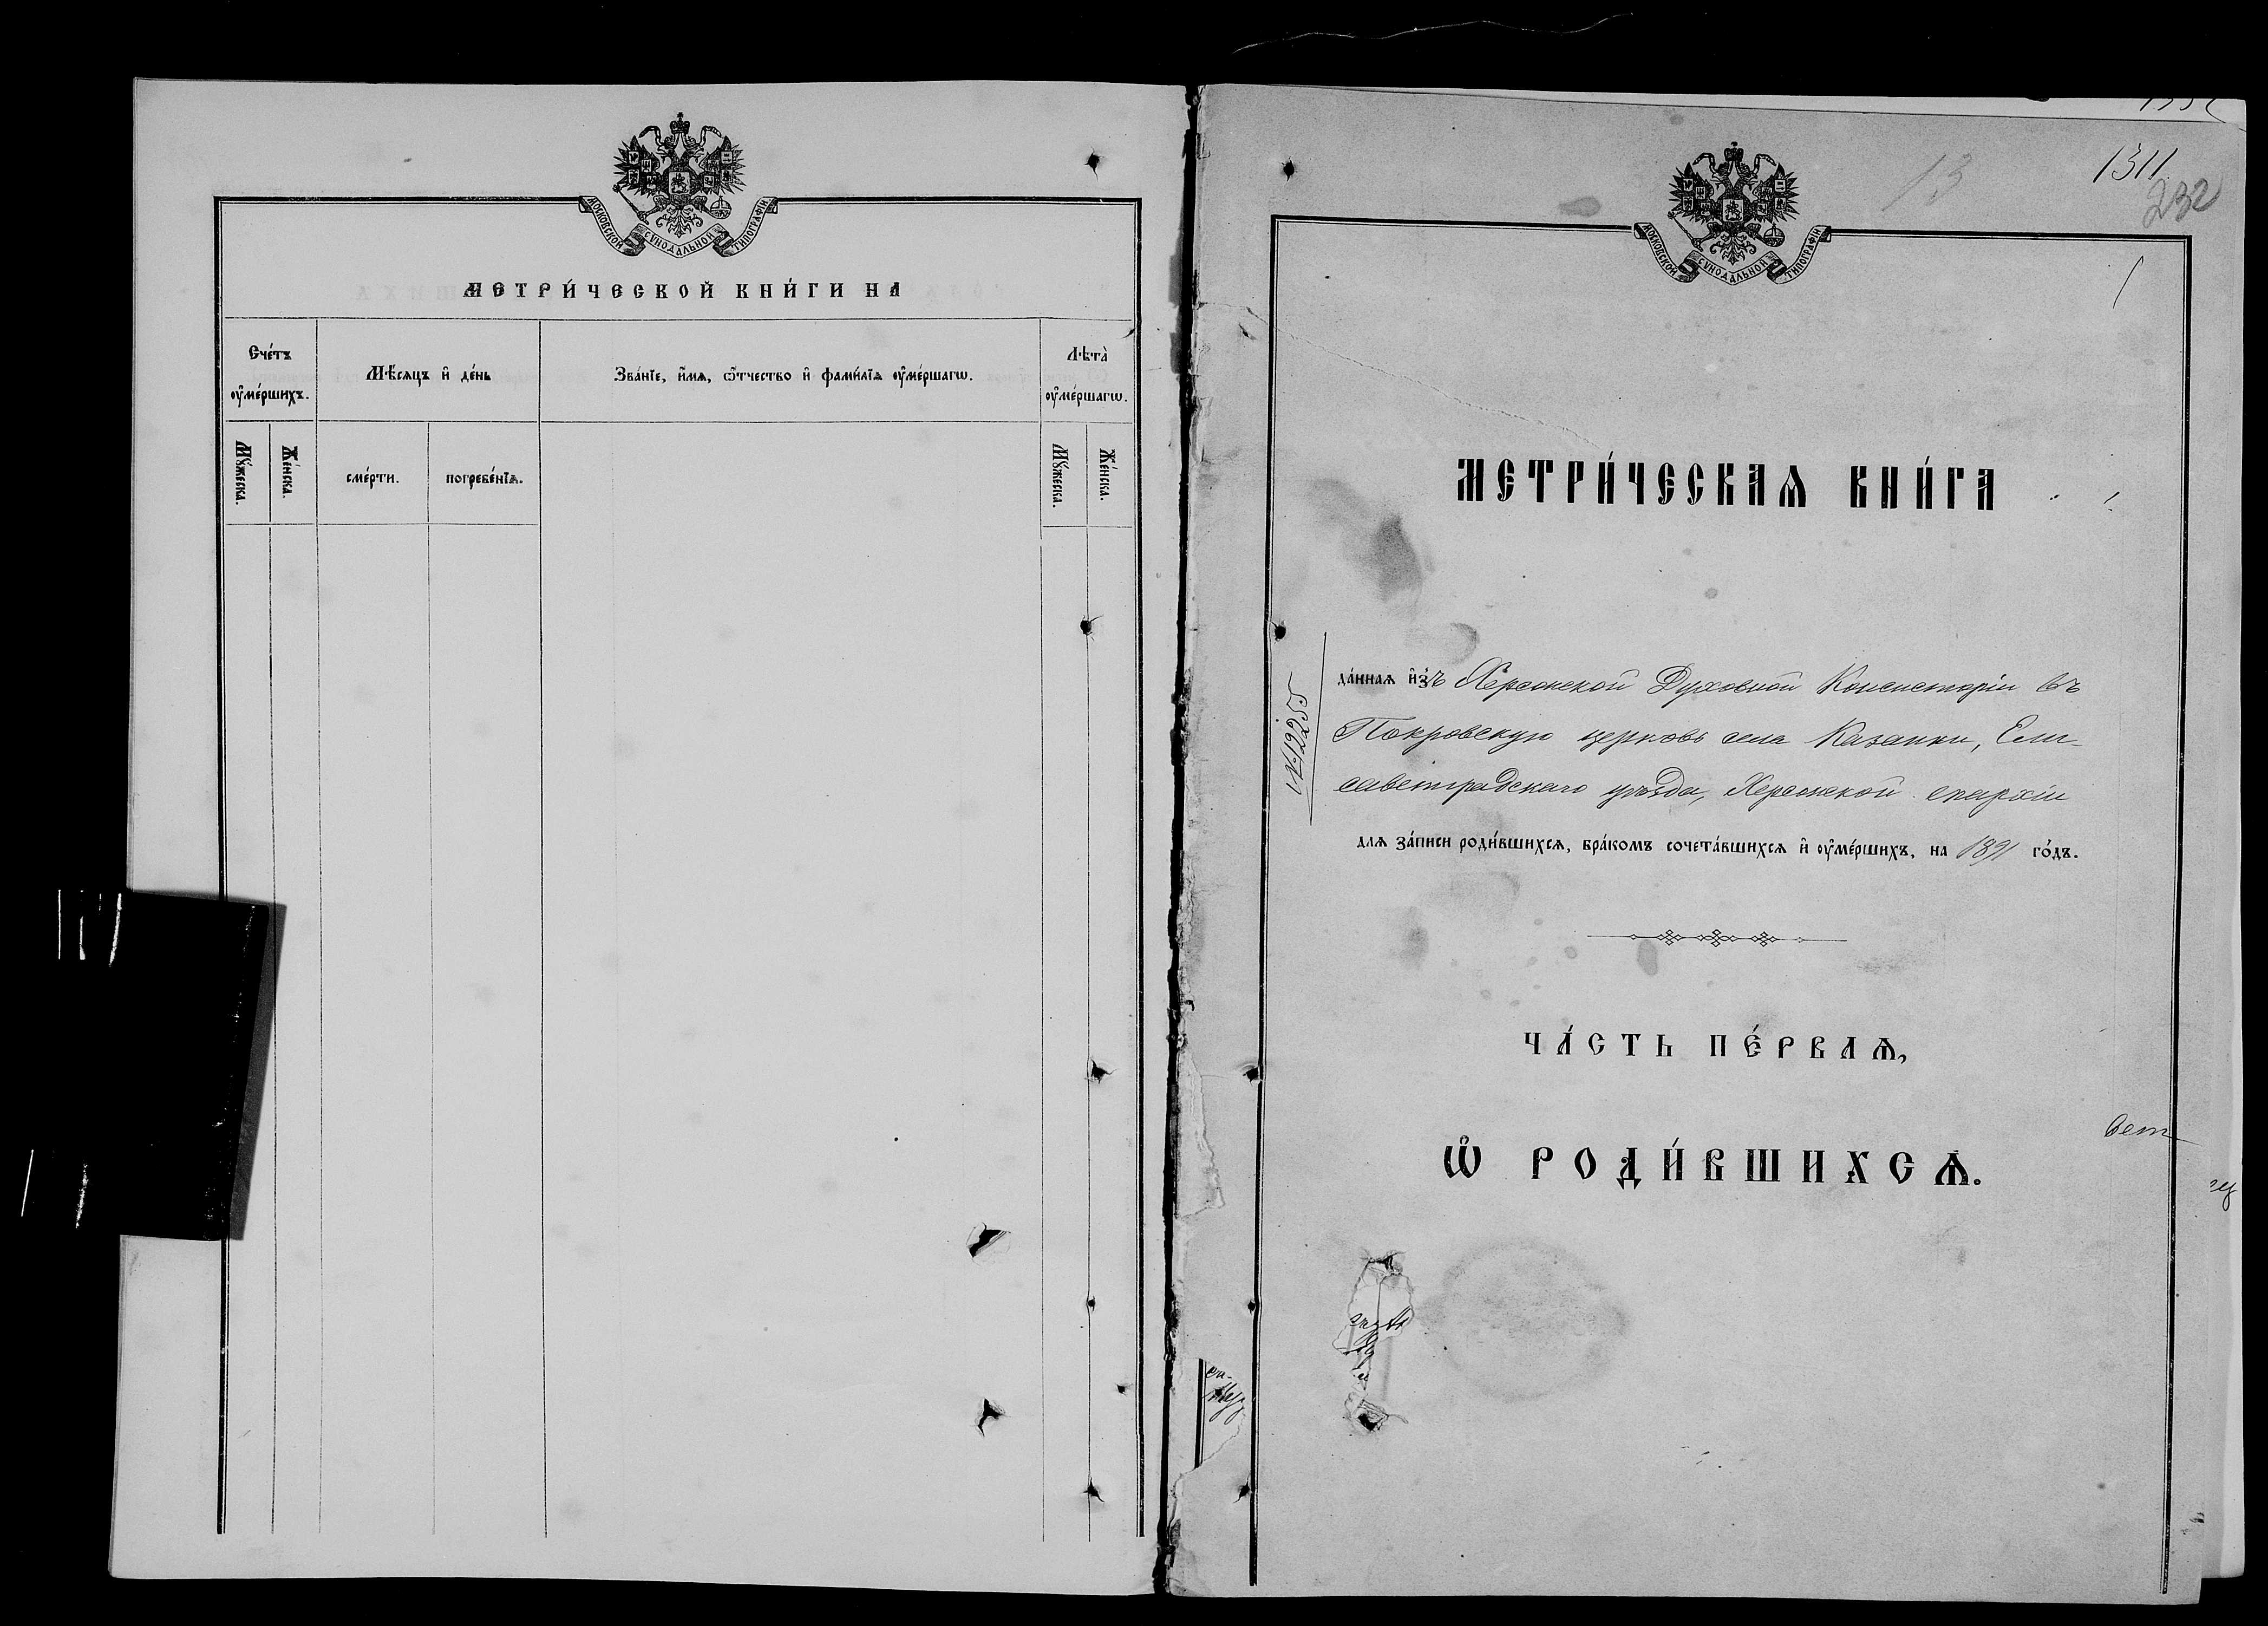 МОСКОВСКОЙ СѴНОДАЛЬНОЙ ТИПОГРАФІИ
МЕТРИ́ЧЕСКОЙ КНИ́ГИ НА
Сче́тъ ᲂу҆ме́ршихъ.
Мѣ́сяцъ и҆ де́нь
Зва́нїе, и҆́мѧ, ѻ҆́тчество и҆ фами́лїѧ ᲂу҆ме́ршагѡ.
Лѣта̀ ᲂу҆ме́ршагѡ.
Мꙋ́жеска.
Же́нска.
сме́рти.
погребе́нїѧ.
Мꙋ́жеска.
Же́нска.
13
1311
232
МОСКОВСКОЙ СѴНОДАЛЬНОЙ ТИПОГРАФІИ
МЕТРИ́ЧЕСКАѦ КНИ́ГА
№12255
да́ннаѧ и҆зъ Херсонской Духовной Консисторіи въ
Покровскую церковь села Казанки, Ели-
саветградскаго уѣзда, Херсонской епархіи
длѧ за́писи роди́вшихсѧ, бра́комъ сочета́вшихсѧ и҆ ᲂу҆ме́ршихъ, на 1891 го́дъ.
ЧА́СТЬ ПЕ́РВАѦ,
Ѡ҆ РОДИ́ВШИХСѦ.
вет